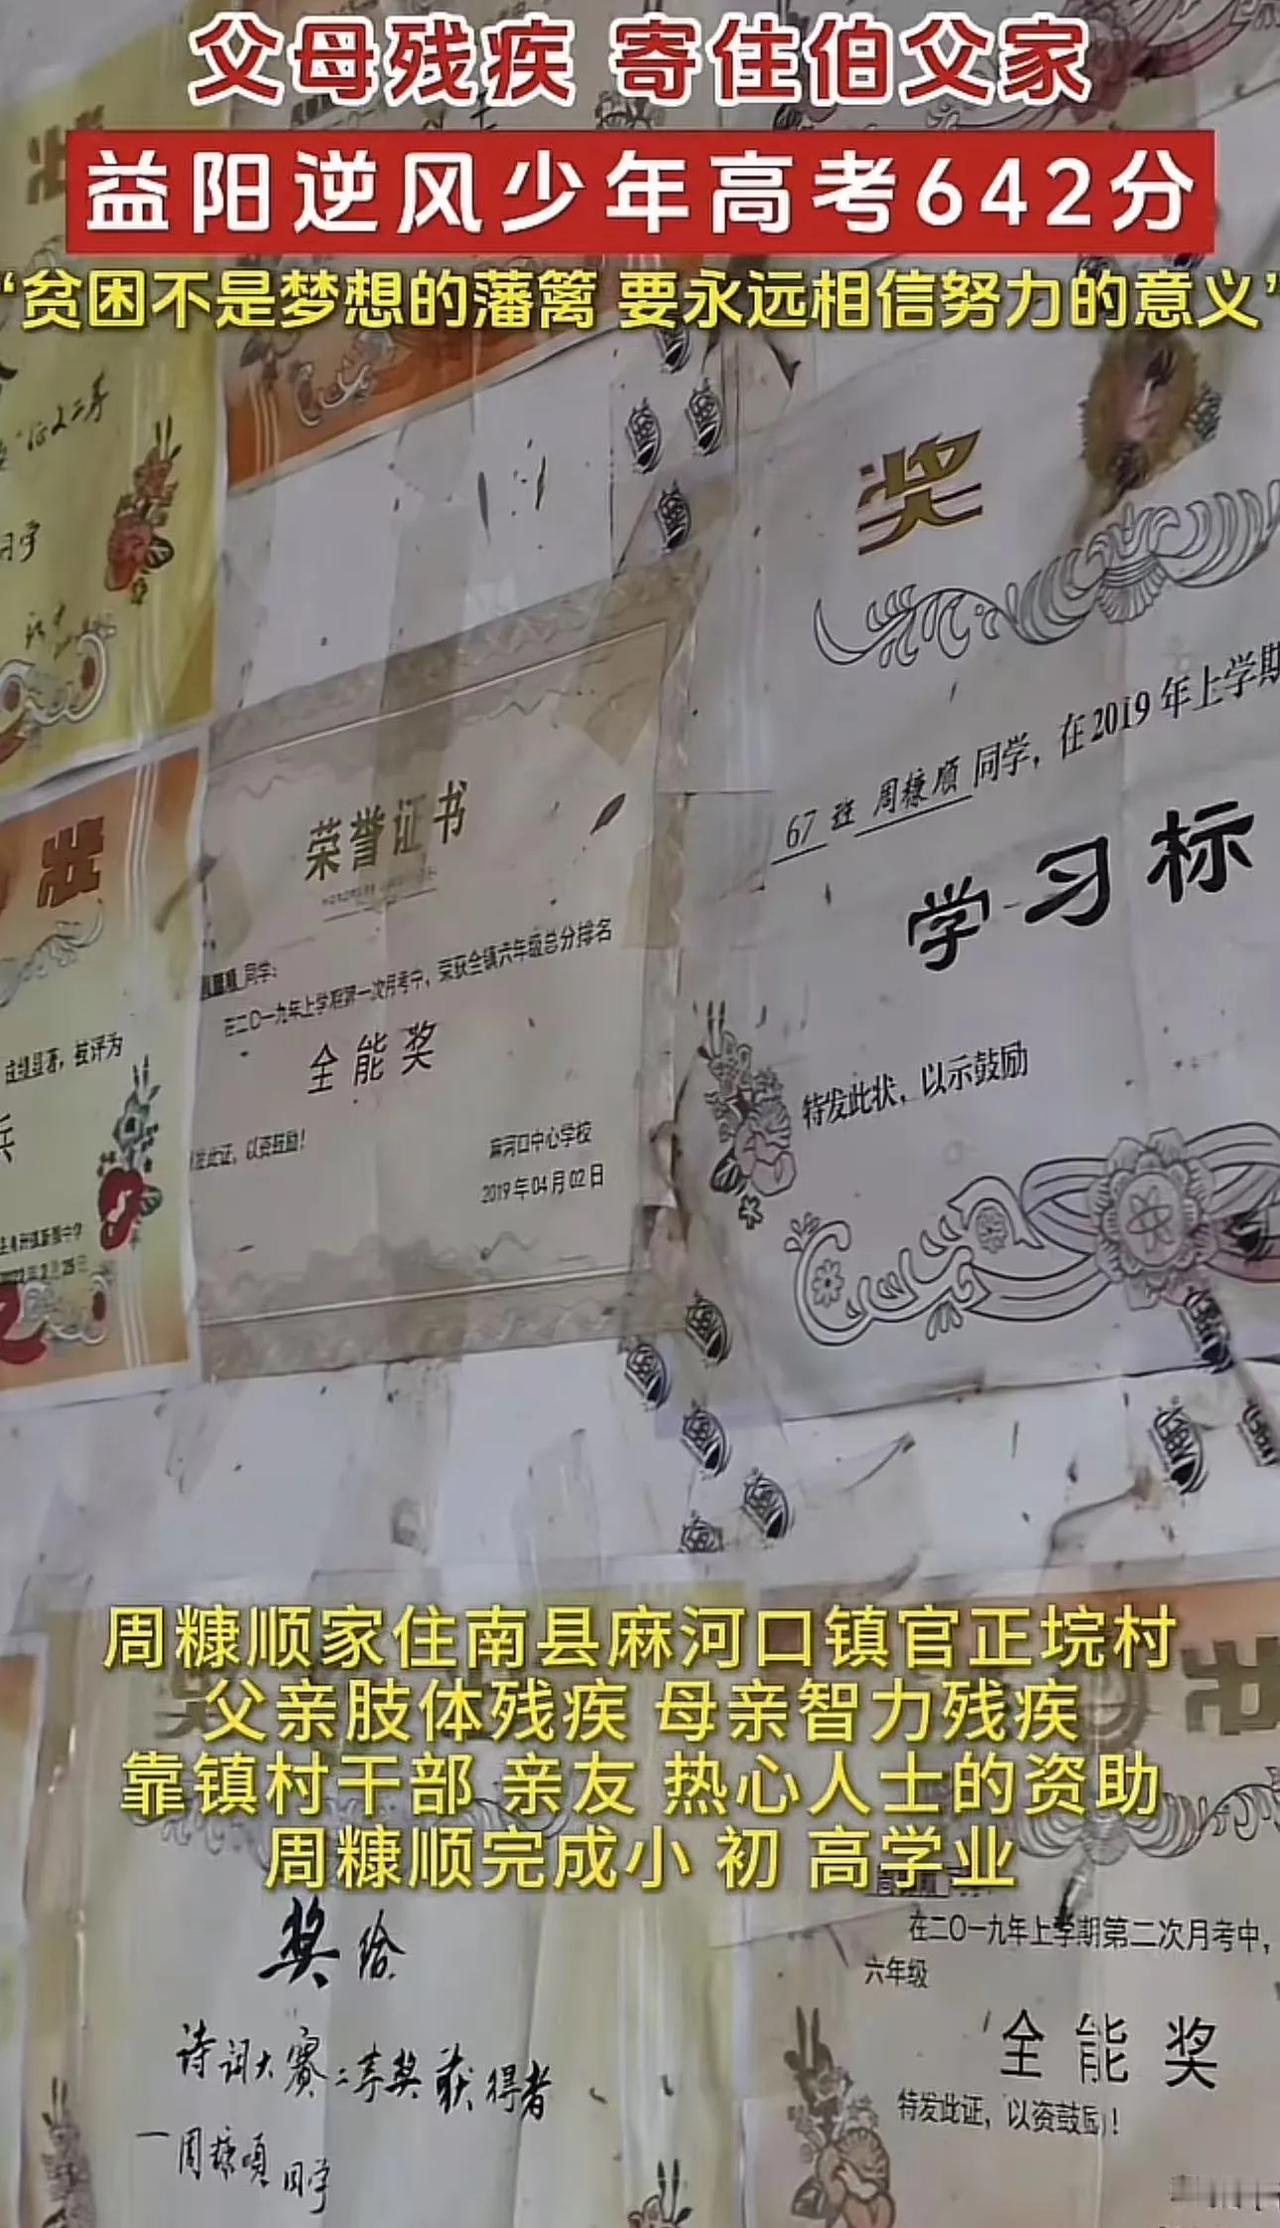 父母残疾 寄住伯父家
益阳逆风少年高考642分
“贫困不是梦想的藩篱 要永远相信努力的意义”
状
同学
奖
67 班 周糠顺 同学，在2019年上学期
学习标
特发此状，以示鼓励
荣誉证书
同学：
在二〇一九年上学期第一次月考中，荣获全镇六年级总分排名
全能奖
发此证，以资鼓励！
麻河口中心学校
2019年04月02日
状
成绩显著，被评为
兵
周糠顺家住南县麻河口镇官正垸村
父亲肢体残疾 母亲智力残疾
靠镇村干部 亲友 热心人士的资助
周糠顺完成小 初 高学业
状
奖给
诗词大赛二等奖获得者
周糠顺同学
在二〇一九年上学期第二次月考中，
六年级
全能奖
特发此证，以资鼓励！